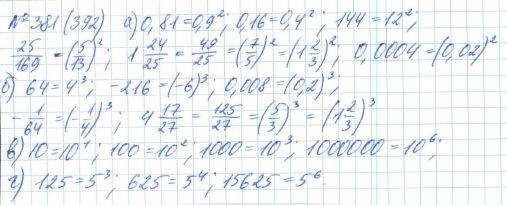 №381 (392) а) 0,81=0,9²; 0,16=0,4²; 144=12²;
25/169 = (5/13)²; 1 24/25 = 49/25 = (7/5)² = (1 2/3)²; 0,0004=(0,02)²
б) 64=4³; -216=(-6)³; 0,008=(0,2)³;
-1/64 = (-1/4)³; 4 17/27 = 125/27 = (5/3)³ = (1 2/3)³
в) 10=10¹; 100=10²; 1000=10³; 1000000=10⁶;
г) 125=5³; 625=5⁴; 15625=5⁶.